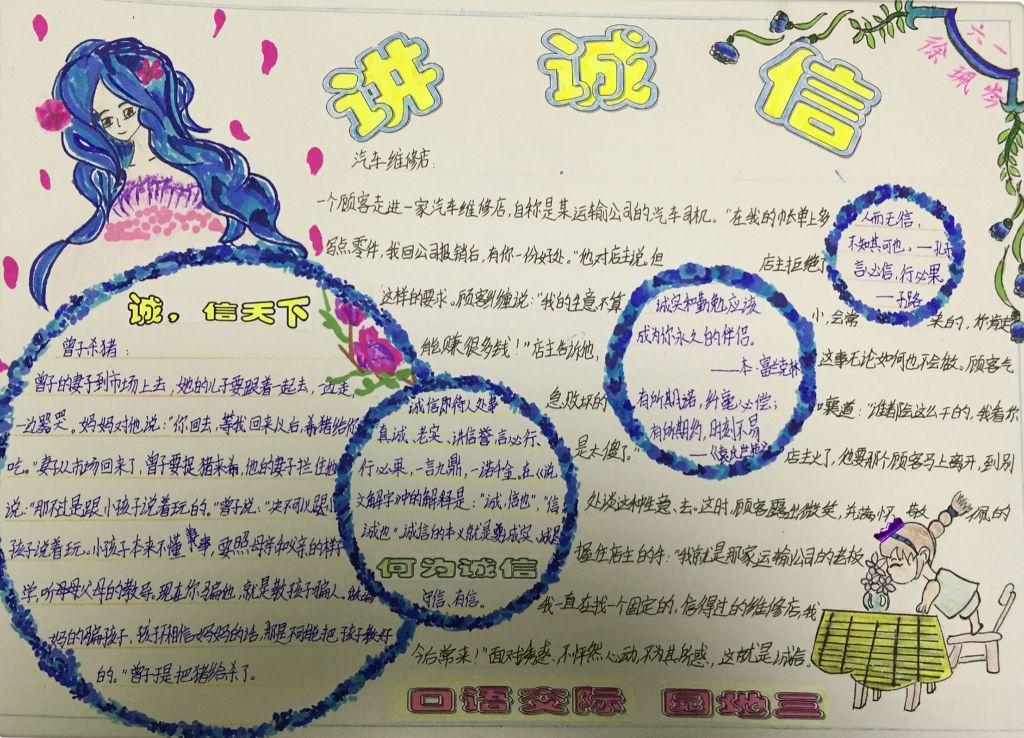 讲诚信
六一
徐珮岑
汽车维修店：
一个顾客走进一家汽车维修店，自称是某运输公司的汽车司机。“在我的帐单上多
写点零件，我回公司报销后，有你一份好处。”他对店主说。但
店主拒绝了
这样的要求。顾客纠缠说：“我的生意不算
小，会常
来的，你肯定
能赚很多钱！”店主告诉他，
这事无论如何也不会做。顾客气
急败坏的
嚷道：“谁都会这么干的，我看你
是太傻了。”
店主火了，他要那个顾客马上离开，到别
处谈这种生意去。这时，顾客露出微笑，充满怀敬佩的
握住店主的手：“我就是那家运输公司的老板
我一直在找一个固定的，信得过的维修店，我
今后常来！”面对诱惑，不怦然心动，不为其所惑，这就是诚信。
人而无信，
不知其可也。—孔子
言必信，行必果。
—子路
诚实和勤勉，应该
成为你永久的伴侣。
——本·富兰克林
有所期诺，纤毫必偿；
有所期约，时刻不易
——《袁氏世范》
诚，信天下
曾子杀猪：
曾子的妻子到市场上去，她的儿子要跟着一起去，边走，
一边哭。妈妈对他说：“你回去，等我回来以后，杀猪给你
吃。”妻子从市场回来了，曾子要捉猪来杀，他的妻子拦住他
说：“那不过是跟小孩子说着玩的。”曾子说：“决不可以跟小
孩子说着玩。小孩子本来不懂事，要照母亲和父亲的样
学，听母母父母的教导。现在你骗他，就是教孩子骗人。做妈
妈的骗孩子，孩子不相信妈妈的话，那是不可能把孩子教好
的。”曾子于是把猪给杀了。
诚信即待人处事
真诚、老实、讲信誉，言必行、
行必果，一言九鼎，一诺千金，在《说
文解字》中的解释是：“诚，信也”，“信，
诚也”。诚信的本义就是要诚实、诚恳
何为诚信
守信、有信。
口语交际 园地三